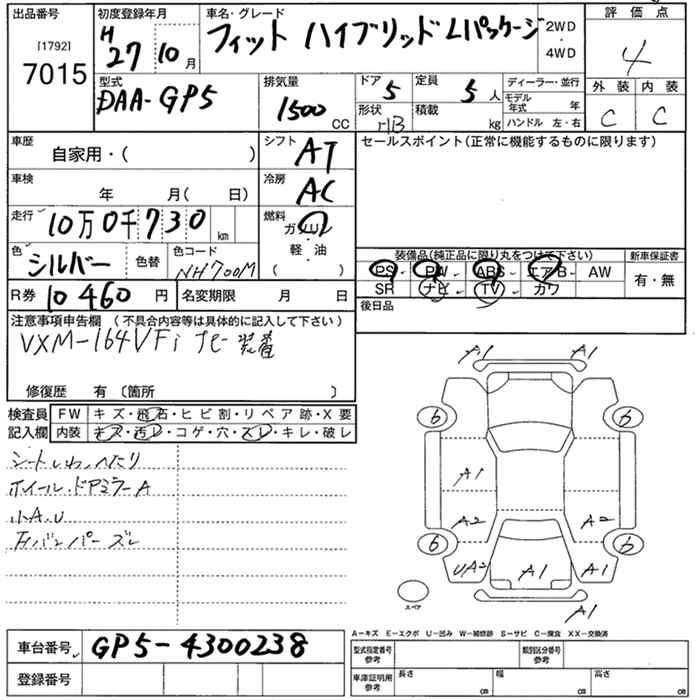 出品番号 初度登録年月 車名・グレード 評価点
[1792] 7015 H27 10月 フィット ハイブリッド Lパッケージ 2WD・4WD 4
型式 DAA-GP5 排気量 1500 CC ドア 5 定員 5人 ディーラー・並行 外装 内装
形状 HB 積載 kg モデル年式 年 ハンドル 左・右 C C
車歴 自家用・( ) シフト AT セールスポイント(正常に機能するものに限ります)
車検 年 月( 日) 冷房 AC
走行 10万0千730 km 燃料 ガソリン・軽油 ( )
色 シルバー 色替 色コード NH700M 装備品(純正品に限り丸をつけて下さい) 新車保証書
PS PW ABS エアB AW 有・無
SR ナビ TV カワ
R券 10460円 名変期限 月 日 後日品
注意事項申告欄 (不具合内容等は具体的に記入して下さい)
VXM-164VFi ナビ装着
修復歴 有 〔箇所 〕
検査員記入欄 FW キズ・飛石・ヒビ割・リペア跡・X要
内装 キズ・汚レ・コゲ・穴・スレ・キレ・破レ
シートしわ、へたり
ホイール・ドアミラーA
小A.U
Fバンパーズレ
A1 A1
6 6
A1
A2 A2
6 6
UA2 A1 A1
スペア
A1
A-キズ E-エクボ U-凹み W-補修跡 S-サビ C-腐食 XX-交換済
車台番号 GP5-4300238 型式指定番号 参考 類別区分番号 参考
登録番号 車庫証明用 参考 長さ cm 幅 cm 高さ cm